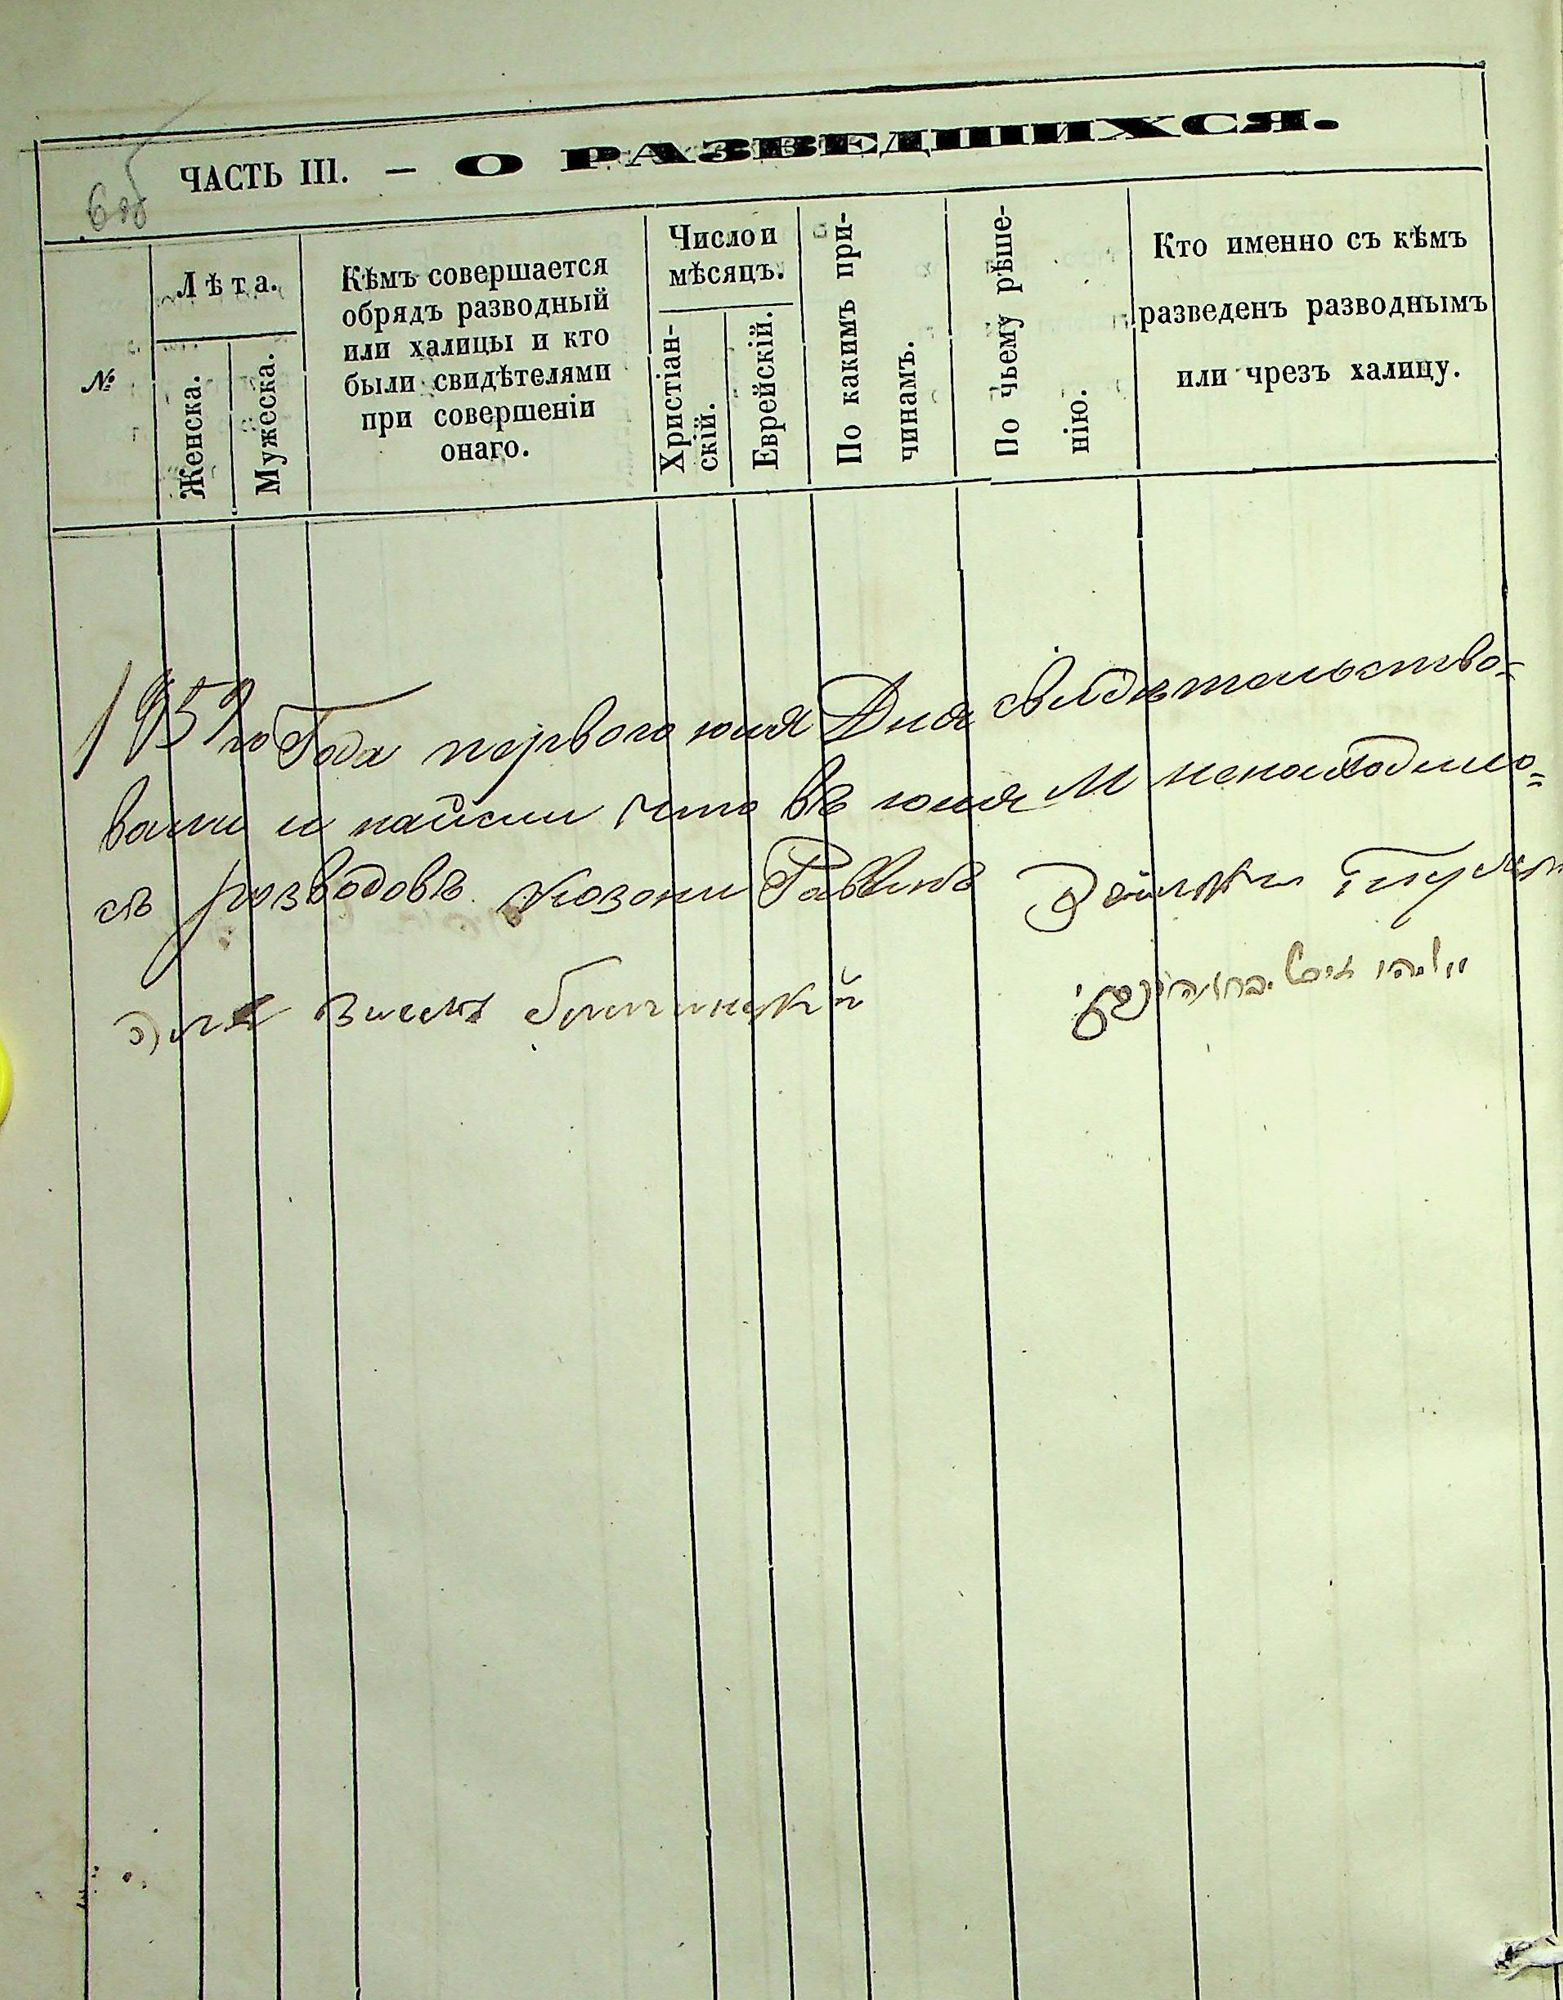 6об
ЧАСТЬ III. — О РАЗВЕДШИХСЯ.
№
Лѣта.
Женска.
Мужеска.
Кѣмъ совершается
обрядъ разводный
или халицы и кто
были свидѣтелями
при совершеніи
онаго.
Число и
мѣсяцъ.
Христіан-
скій.
Еврейскій.
По какимъ при-
чинамъ.
По чьему рѣше-
нію.
Кто именно съ кѣмъ
разведенъ разводнымъ
или чрезъ халицу.
1859 го Года первого юня Дня свидѣтельство=
вали и найшли что въ юня М ненаходило=
сь розводовъ Казони Раввинъ